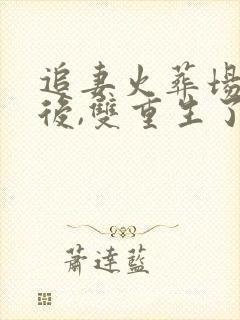 追妻火葬場
後,雙重生了
蕭達藍